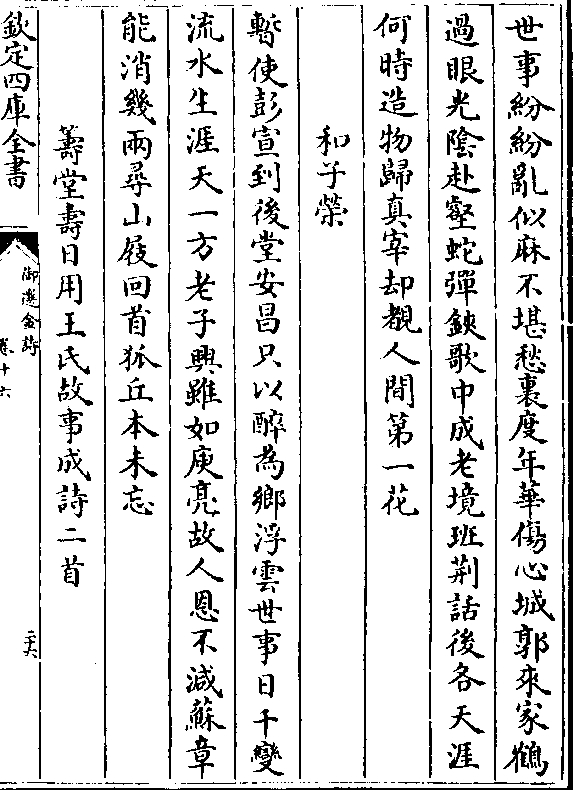 世事紛紛亂似麻不堪愁裏度年華傷心城郭來家鶴
過眼光陰赴壑蛇彈鋏歌中成老境班荆話後各天涯
何時造物歸真宰却覩人間第一花
和子榮
暫使彭宣到後堂安昌只以醉為鄉浮雲世事日千變
流水生涯天一方老子興雖如庾亮故人恩不減蘇章
能消幾兩尋山屐回首狐丘本未忘
籌堂壽日用王氏故事成詩二首
欽定四庫全書
御選金詩
卷十六
二六